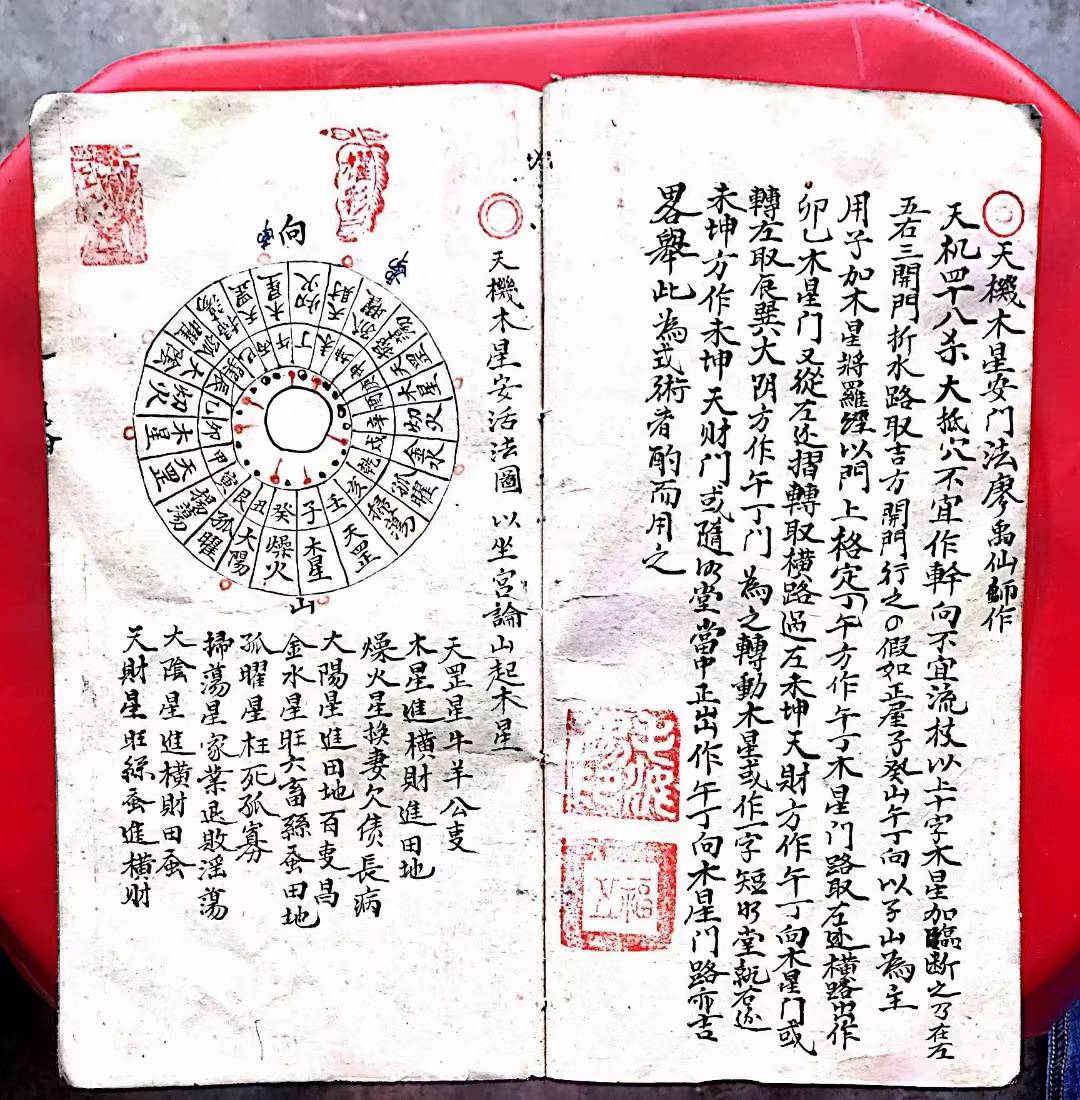 天機木星安门法廖禹仙師作
天机四十八杀大抵穴不宜作幹向不宜流杖以上十字木星加臨断之乃在左
五右三開門折水路取吉方開門行之假如正屋子癸山午丁向以子山為主
用子加木星將羅經以門上格定丁午方作午丁木星门路取左边横路出作
卯乙木星门又從左边摺轉取横路過左未坤天財方作午丁向木星门或
轉左取辰巽大阴方作午丁门為之轉動木星或作一字短明堂就右边
未坤方作未坤天财门或隨明堂當中正出作午丁向木星门路亦吉
畧舉此為式術者酌而用之
天機木星安活法圖 以坐宮論山起木星
向
山
木星
燥火
大陽
孤曜
掃蕩
天罡
木星
大陰
孤曜
掃蕩
天罡
木星
天財
天罡
木星
金水
孤曜
掃蕩
天罡
子
癸
丑
艮
寅
甲
卯
乙
辰
巽
丙
午
丁
未
坤
辛
戌
乾
亥
壬
天罡星牛羊公事
木星進橫財進田地
燥火星换妻欠债長病
大陽星進田地百事昌
金水星旺六畜絲蚕田地
孤曜星枉死孤寡
掃蕩星家業退敗淫蕩
大陰星進橫財田蚕
天財星旺絲蚕進横財